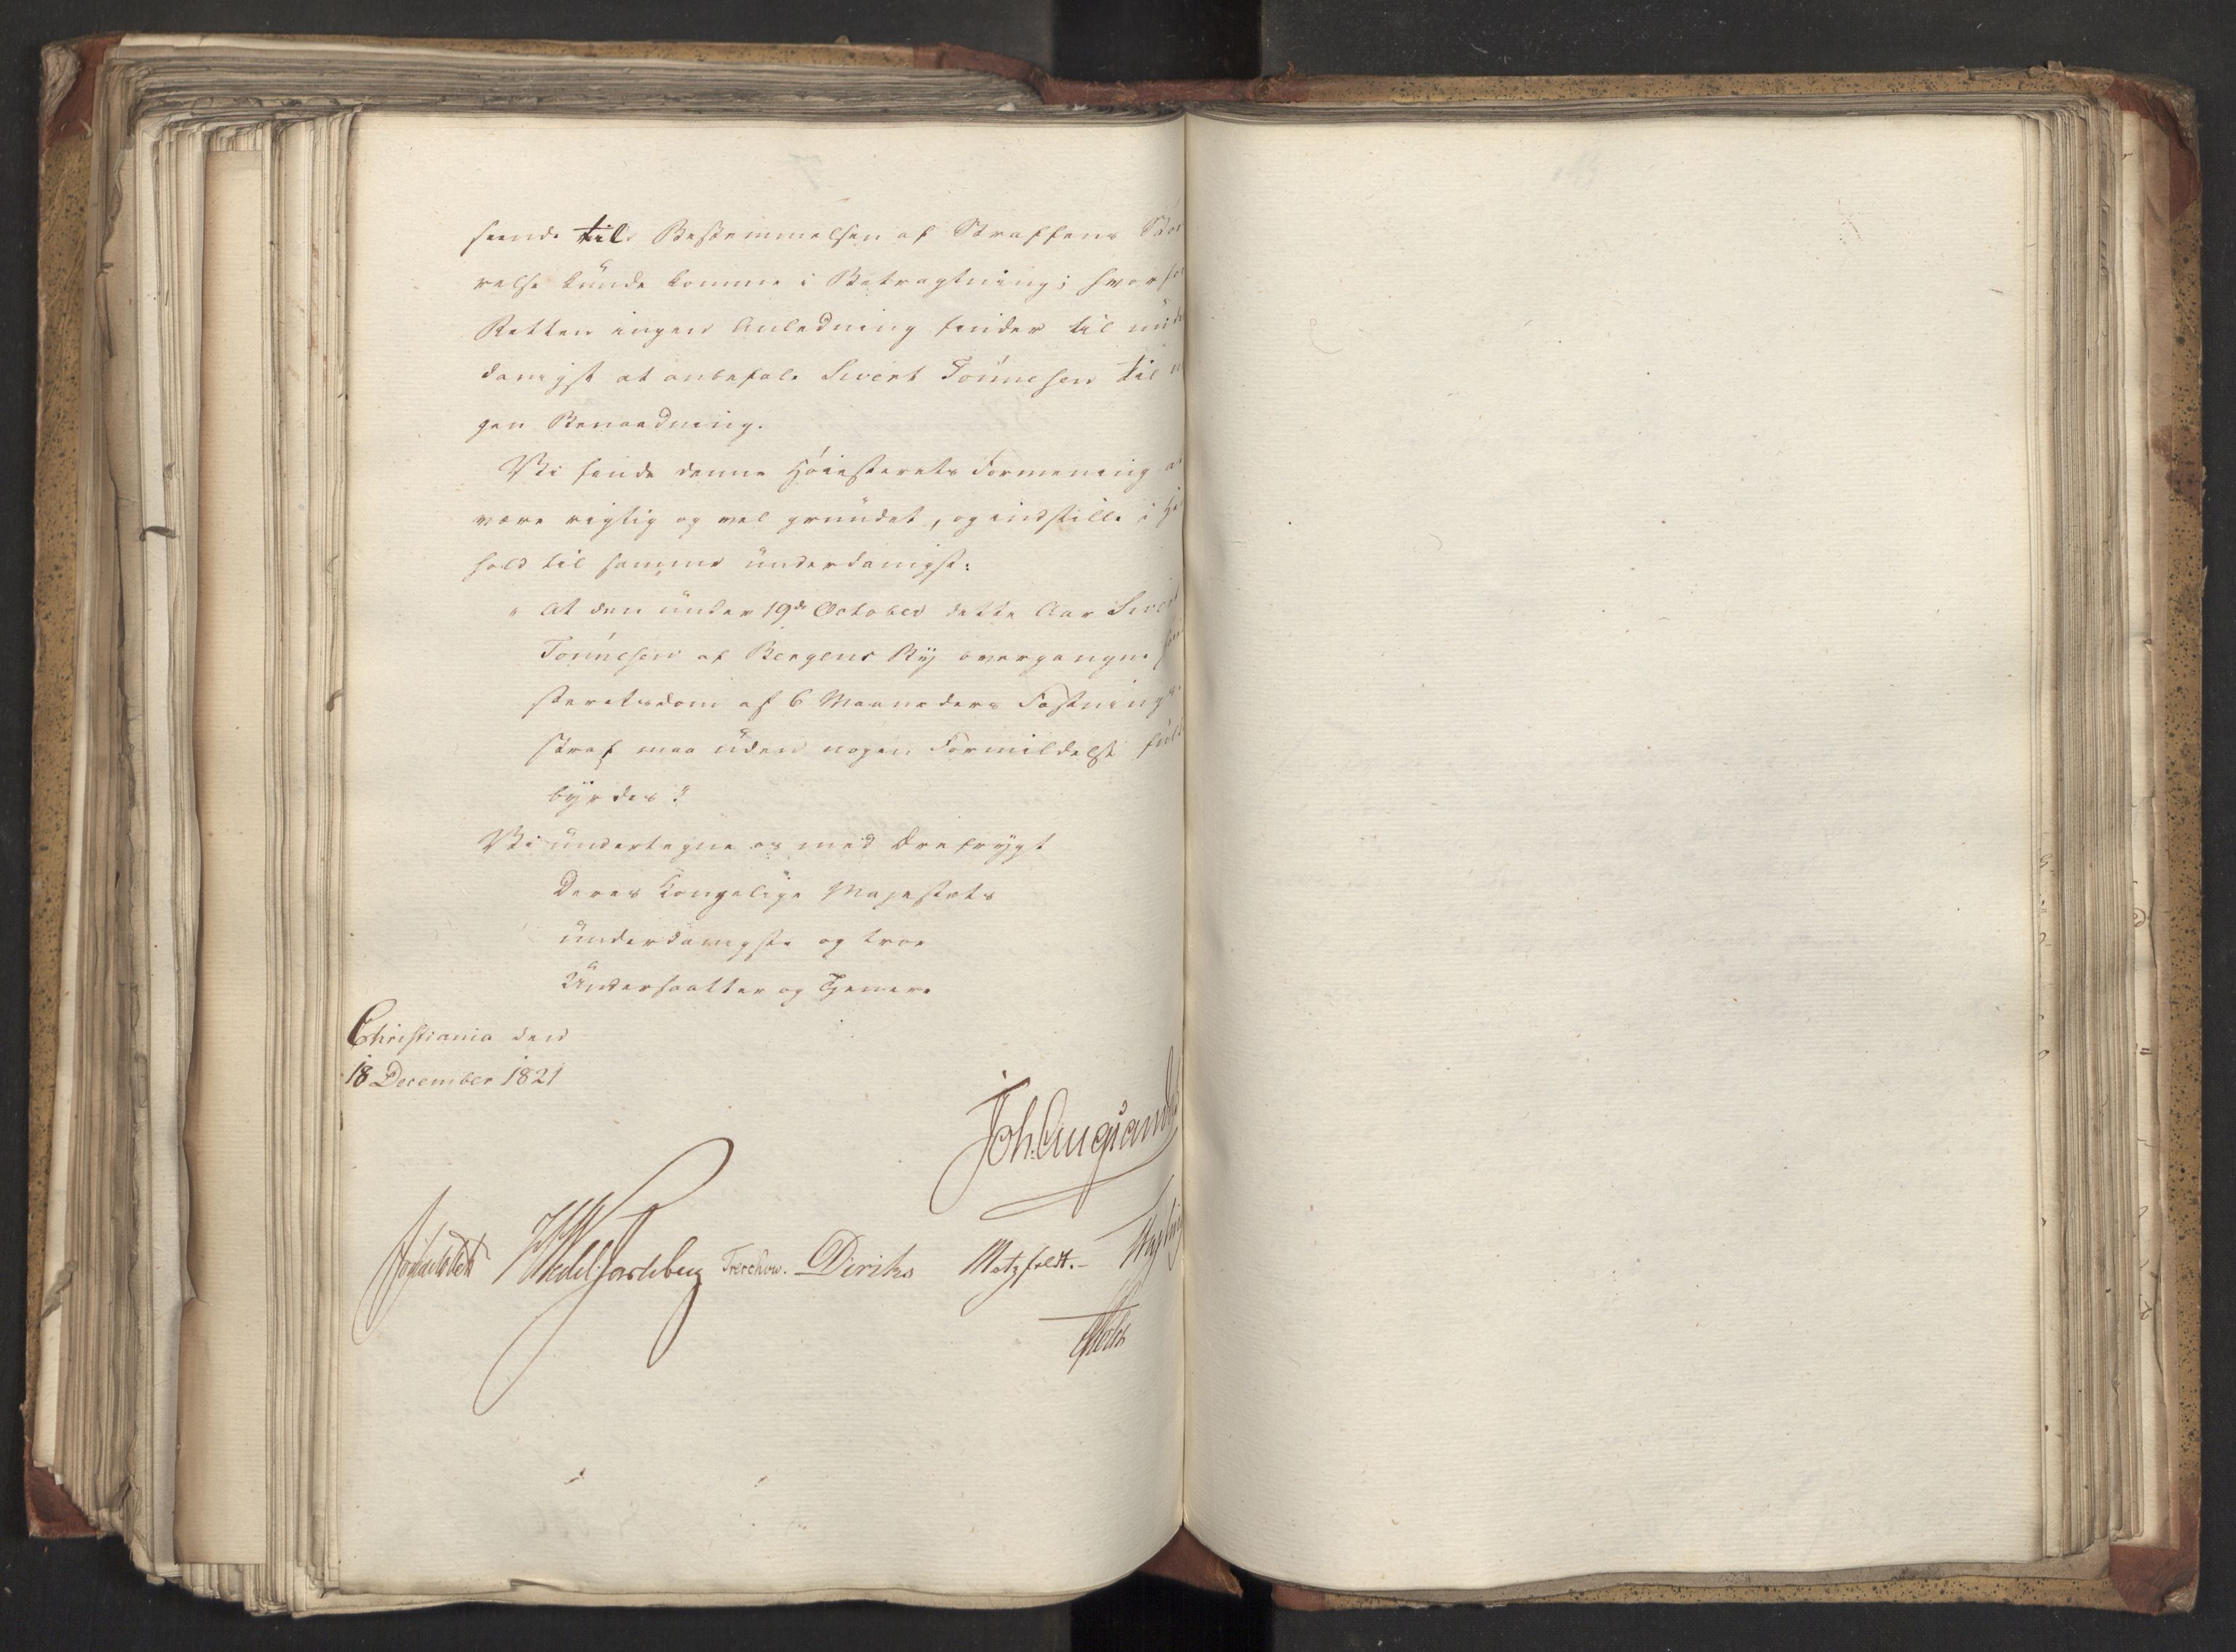 seende til Bestemmelsen af Straffens Stør
relse kunde komme i Betragtning; hvorfor
Retten ingen Anledning finder til un
danigst at anbefale Sivert Tønnesen til
gen Benaadning.
Vi finde denne Høiesterets Formening at
være rigtig og vel grundet, og indstille i
hold til samme underdanigst:
"At den under 19de October dette Aar Sivert
Tønnesen af Bergens By overgangne
steretsdom af 6 Maaneders Fæstnings
straf maa uden nogen Formildelse fuld
byrdes."
Vi undertegne os med Ærefrygt
Deres Kongelige Majestæts
underdanigste og troe
Undersaatter og Tjenere
Christiania den
18 December 1821
Joh. Aug Sandels
Wedel Jarlsberg Treschow. Diriks Motzfeldt.
Holst